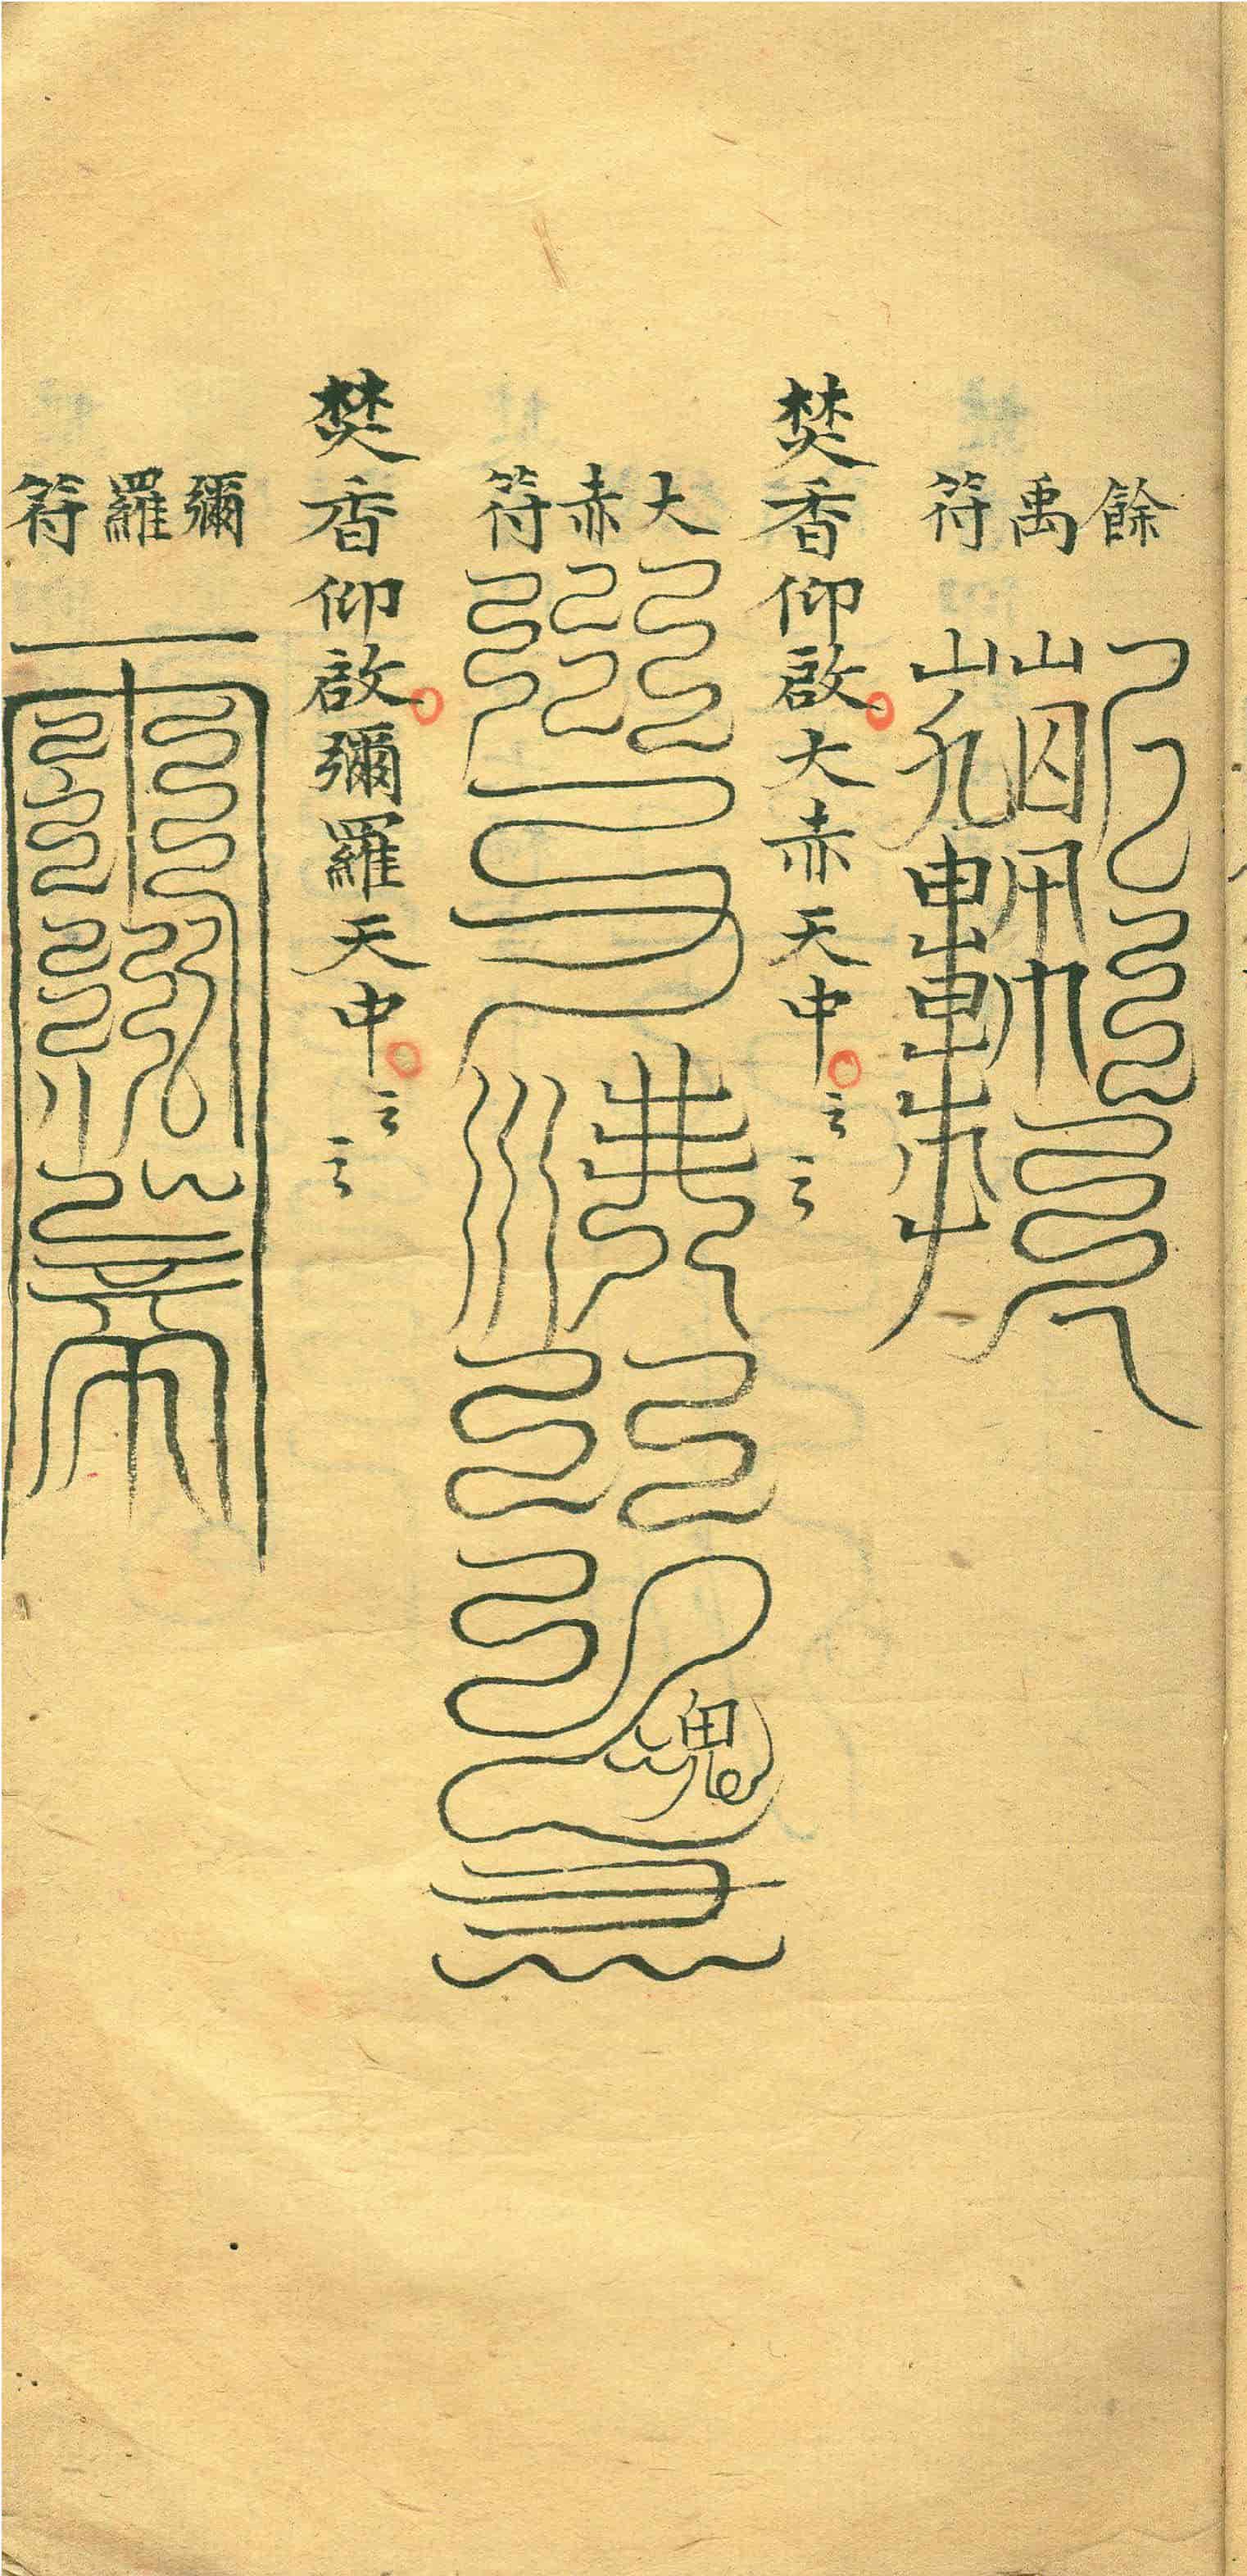 餘禹符
焚香仰啟大赤天中云云
大赤符
焚香仰啟彌羅天中云云
彌羅符